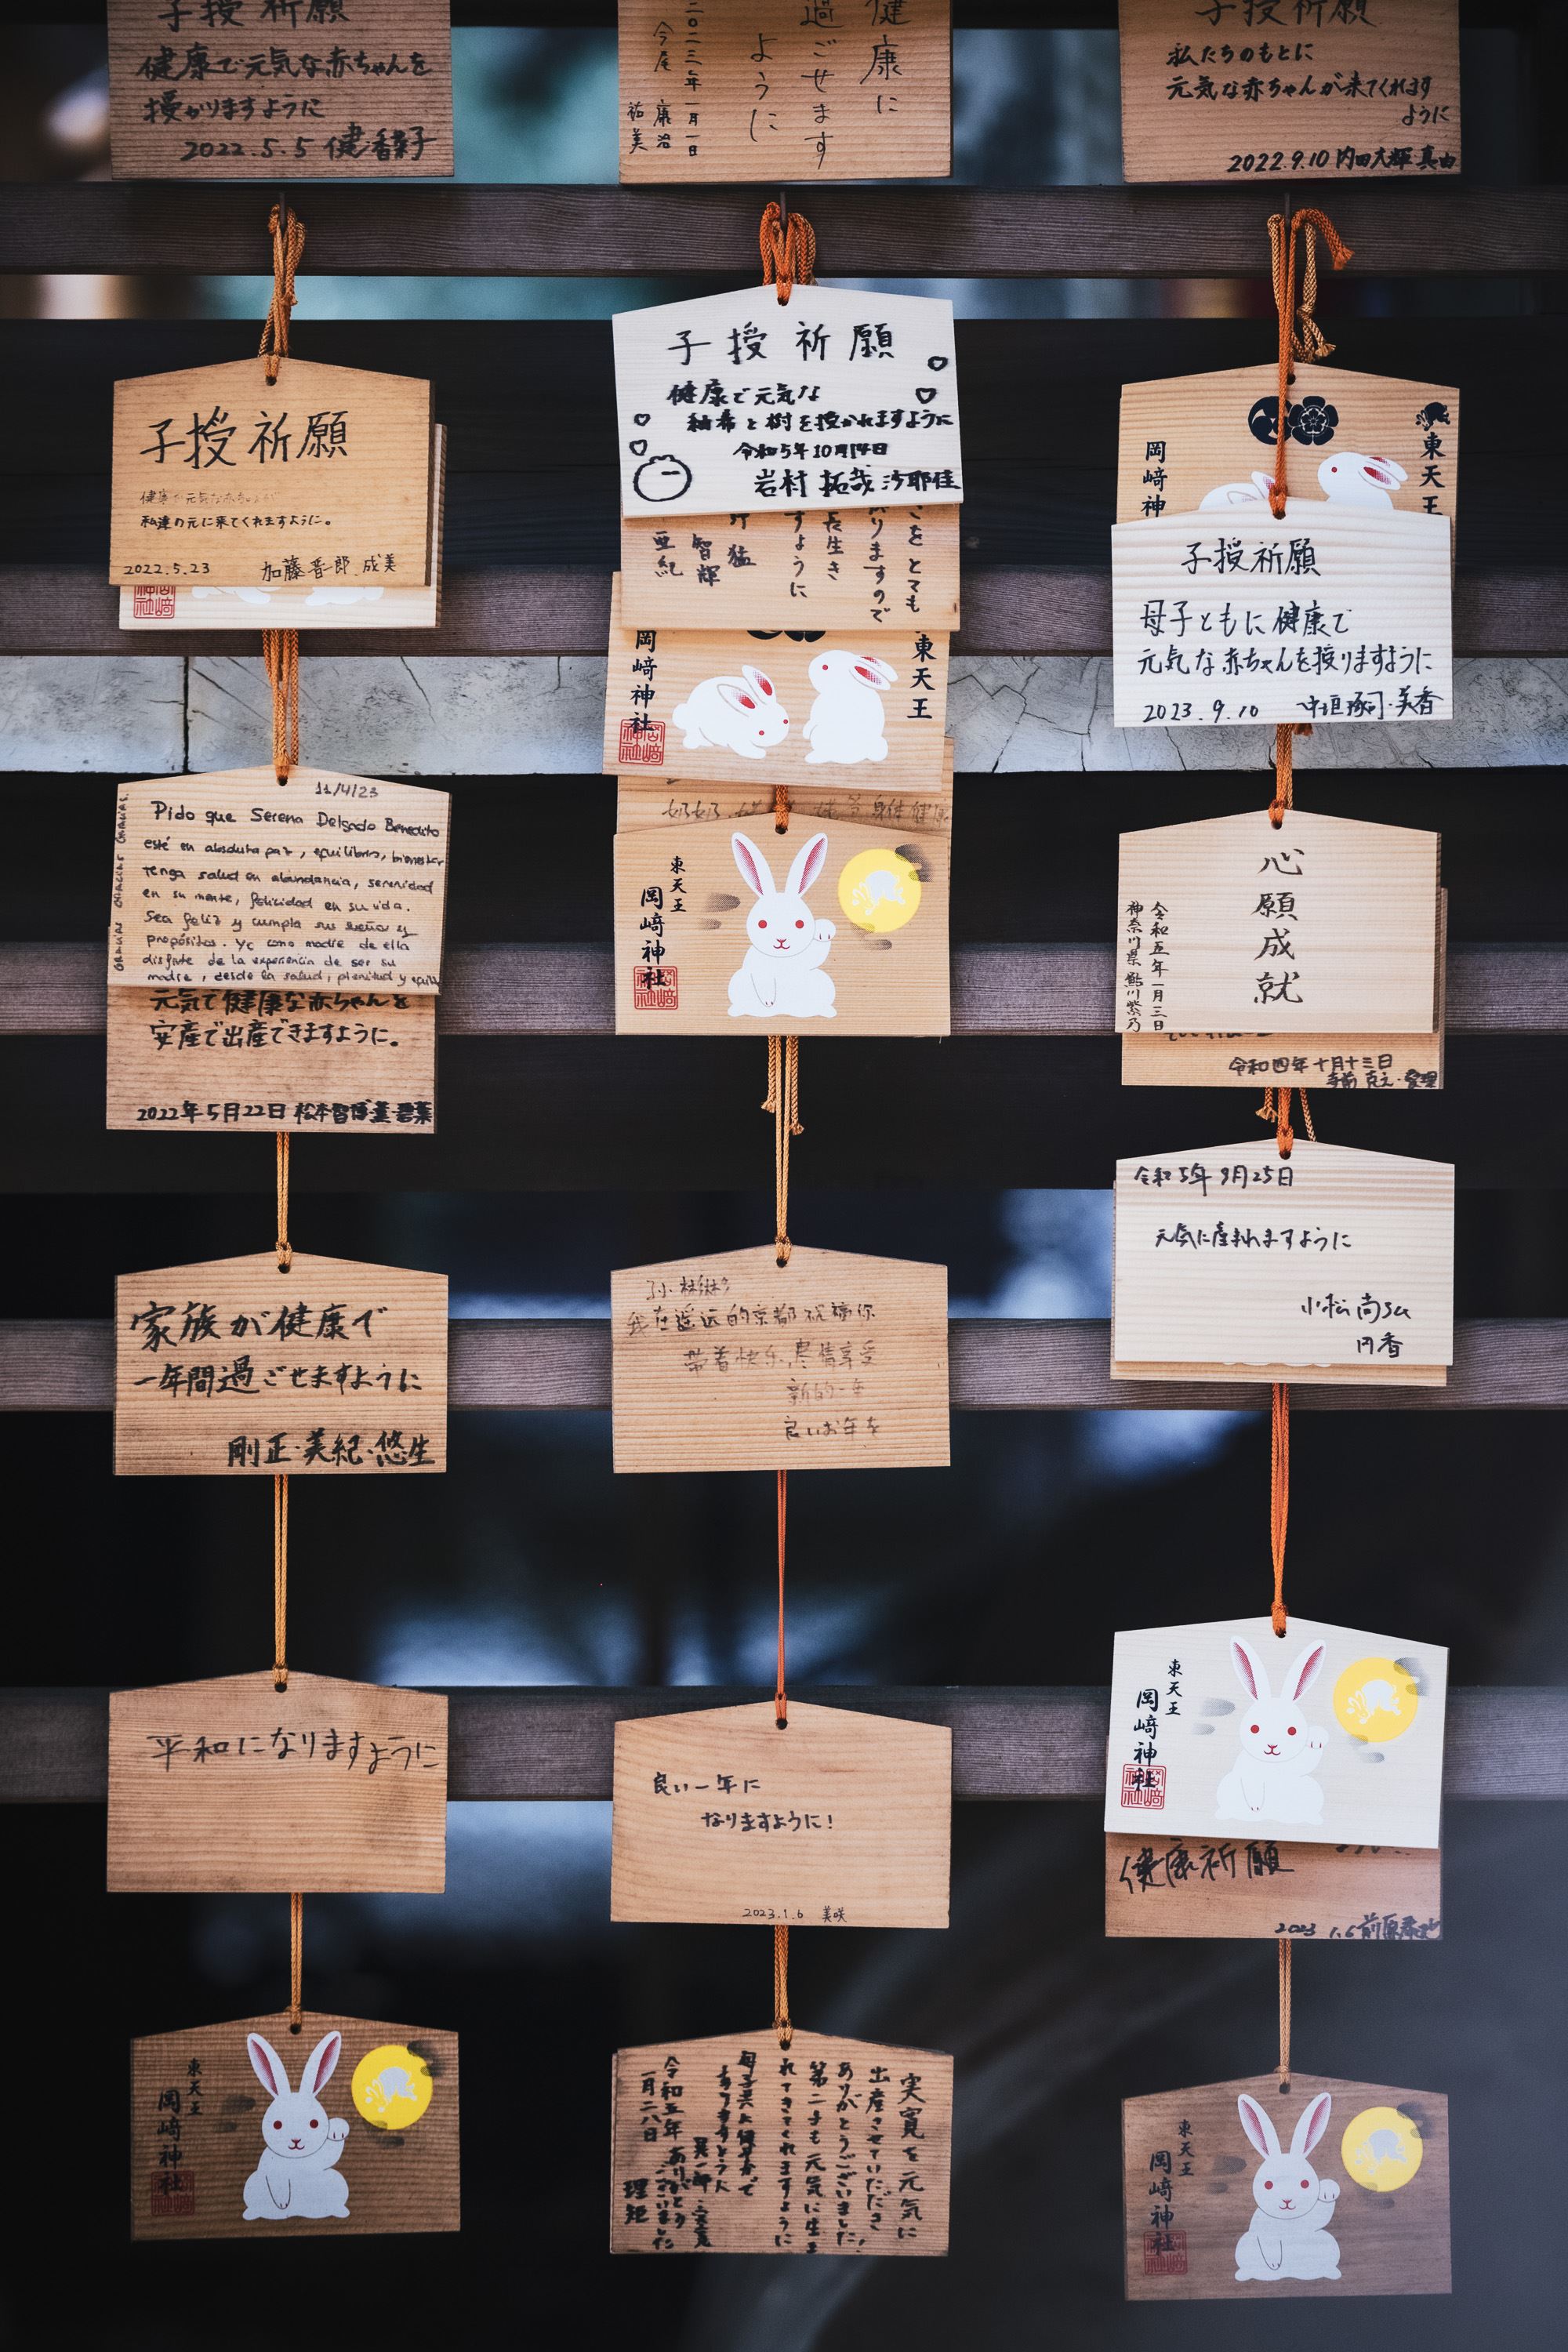 子授祈願
健康で元気な赤ちゃんを
授かりますように
2022.5.5
健康に
過ごせます
ように
二〇二三年一月一日
今尾 康治
祐美
子授祈願
私たちのもとに
元気な赤ちゃんが来てくれます
ように
2022.9.10 内田大輝 真由
子授祈願
私達の元に来てくれますように。
2022.5.23 加藤晋一郎 成美
子授祈願
健康で元気な
紬希と樹を授かれますように
令和5年10月14日
岩村 拓哉 沙耶佳
をとても
りますので
長生き
すように
猛
智輝
亜紀
東天王
岡﨑神社
東天王
岡﨑神
子授祈願
母子ともに健康で
元気な赤ちゃんを授りますように
2023.9.10 中垣琢司・美香
11/4/23
Pido que Serena Delgado Benedito
esté en absoluta paz, equilibrio, bienestar
Tenga salud en abundancia, serenidad
en su mente, felicidad en su vida.
Sea feliz y cumpla sus sueños y
propósitos. Yo como madre de ella
disfrute de la experiencia de ser su
madre, desde la salud, plenitud y
GRACIAS GRACIAS GRACIAS
元気で健康な赤ちゃんを
安産で出産できますように。
2022年5月22日 松本
身体健康
東天王
岡﨑神社
心願成就
令和五年一月三日
神奈川県 鮎川紫乃
令和四年十月十三日
令和5年9月25日
元気に産まれますように
小松
円香
家族が健康で
一年間過ごせますように
剛正・美紀・悠生
我在遥远的京都祝福你
带着快乐,尽情享受
新的一年
良いお年を
平和になりますように
良い一年に
なりますように!
2023.1.6 美咲
東天王
岡﨑神社
健康祈願
2023 1.6
東天王
岡﨑神社
実寛を元気に
出産させていただき
ありがとうございました!
第二子も元気に生ま
れてきてくれますように
母子共に健康で
ありますように
令和五年
一月二八日
ありがとう
ございました
理矩
東天王
岡﨑神社